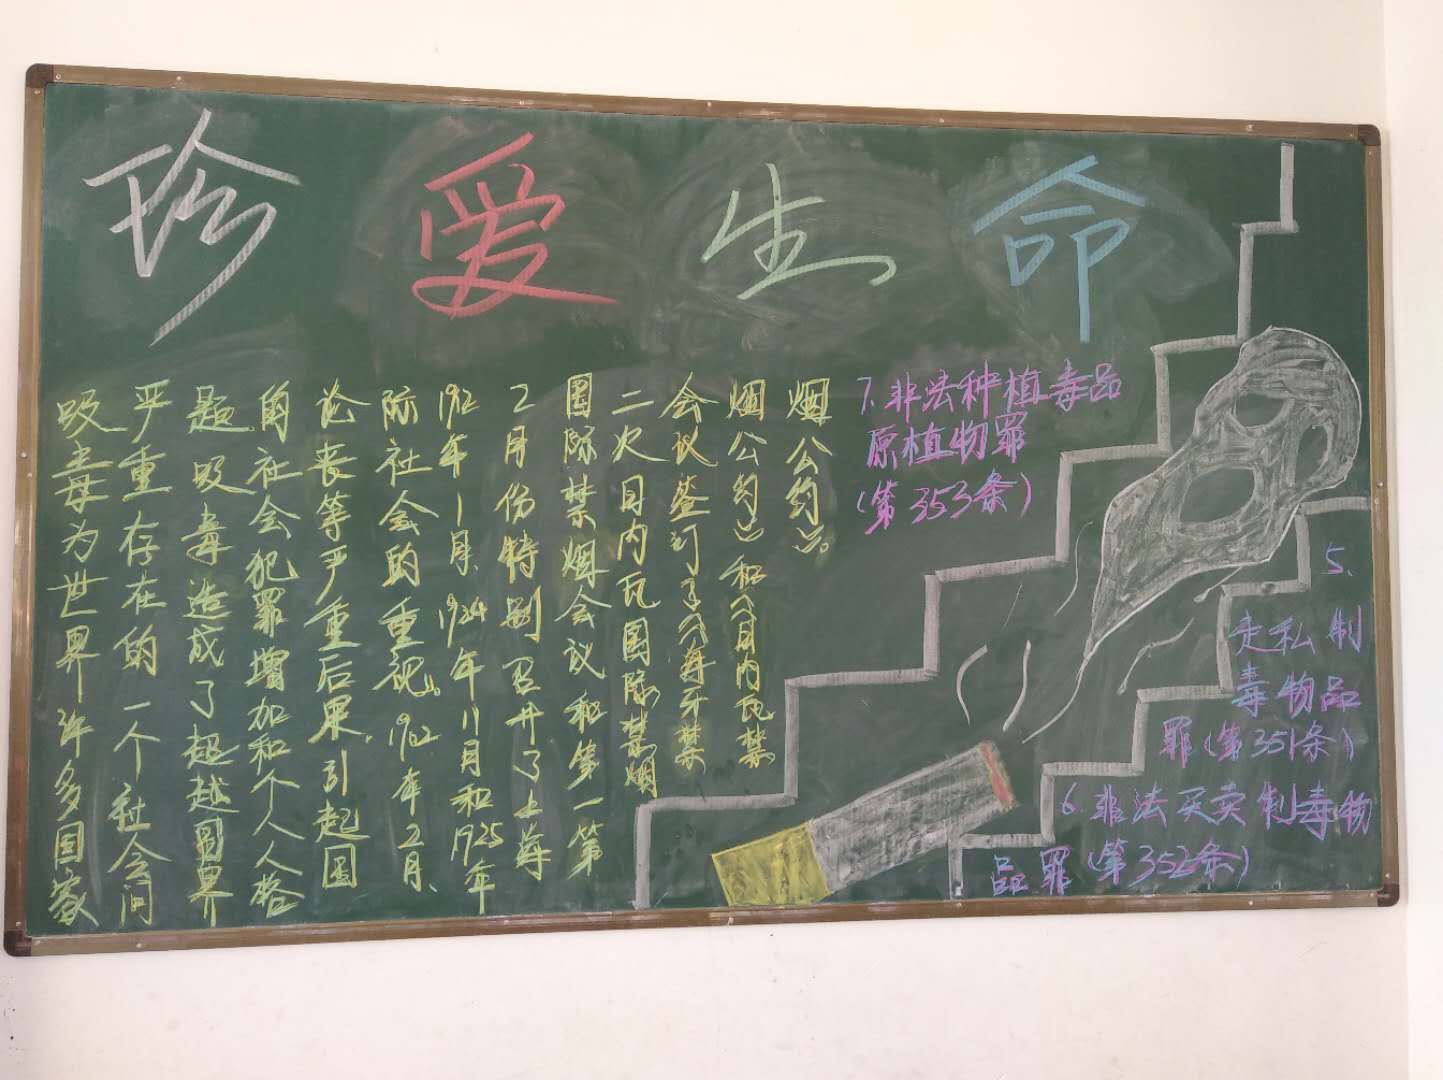 珍爱生命
吸毒为世界许多国家
严重存在的一个社会问
题吸毒造成了超越国界
的社会犯罪增加和个人人格
论丧等严重后果,引起国
际社会的重视。1912.年2月、
1912年1月、1924年11月和1925年
2月份特别召开了上海
国际禁烟会议和第一第
二次日内瓦国际禁烟
会议签订了《海牙禁
烟公约》和《日内瓦禁
烟公约》。
7.非法种植毒品
原植物罪
(第353条)
5.
走私制
毒物品
罪(第351条)
6.非法买卖制毒物
品罪(第352条)